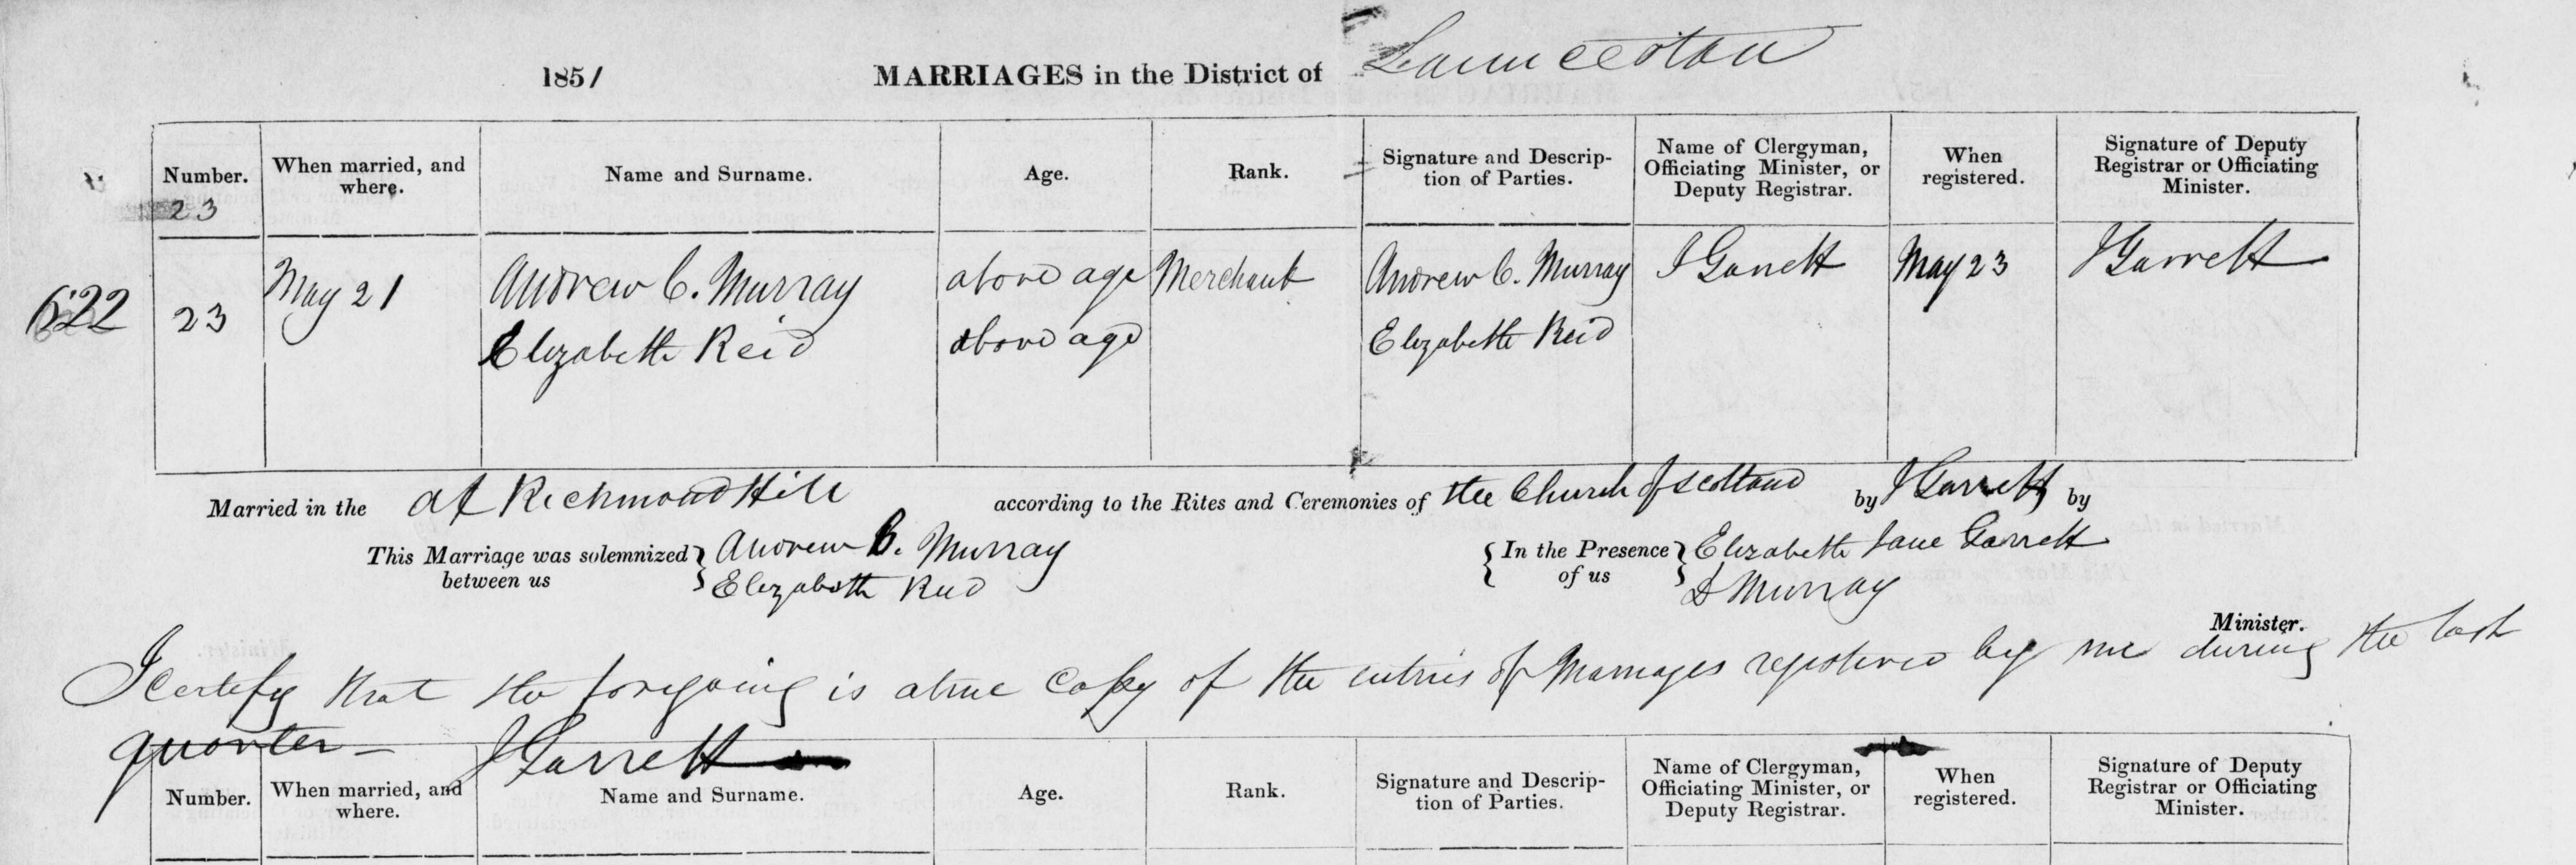 1851 MARRIAGES in the District of Launceston
Number. When married, and where. Name and Surname. Age. Rank. Signature and Descrip- tion of Parties. Name of Clergyman, Officiating Minister, or Deputy Registrar. When registered. Signature of Deputy Registrar or Officiating Minister.
23
622 23 May 21 Andrew C. Murray above age Merchant Andrew C. Murray J Garrett May 23 J Garrett
Elizabeth Reid above age Elizabeth Reid
Married in the at Richmond Hill according to the Rites and Ceremonies of the Church of Scotland by J Garrett by
This Marriage was solemnized between us { Andrew B. Murray { In the Presence of us } Elizabeth Jane Garrett
Elizabeth Reid D Murray
Minister.
I certify that the foregoing is a true Copy of the entries of Marriages registered by me during the last
quarter – J Garrett
Number. When married, and where. Name and Surname. Age. Rank. Signature and Descrip- tion of Parties. Name of Clergyman, Officiating Minister, or Deputy Registrar. When registered. Signature of Deputy Registrar or Officiating Minister.